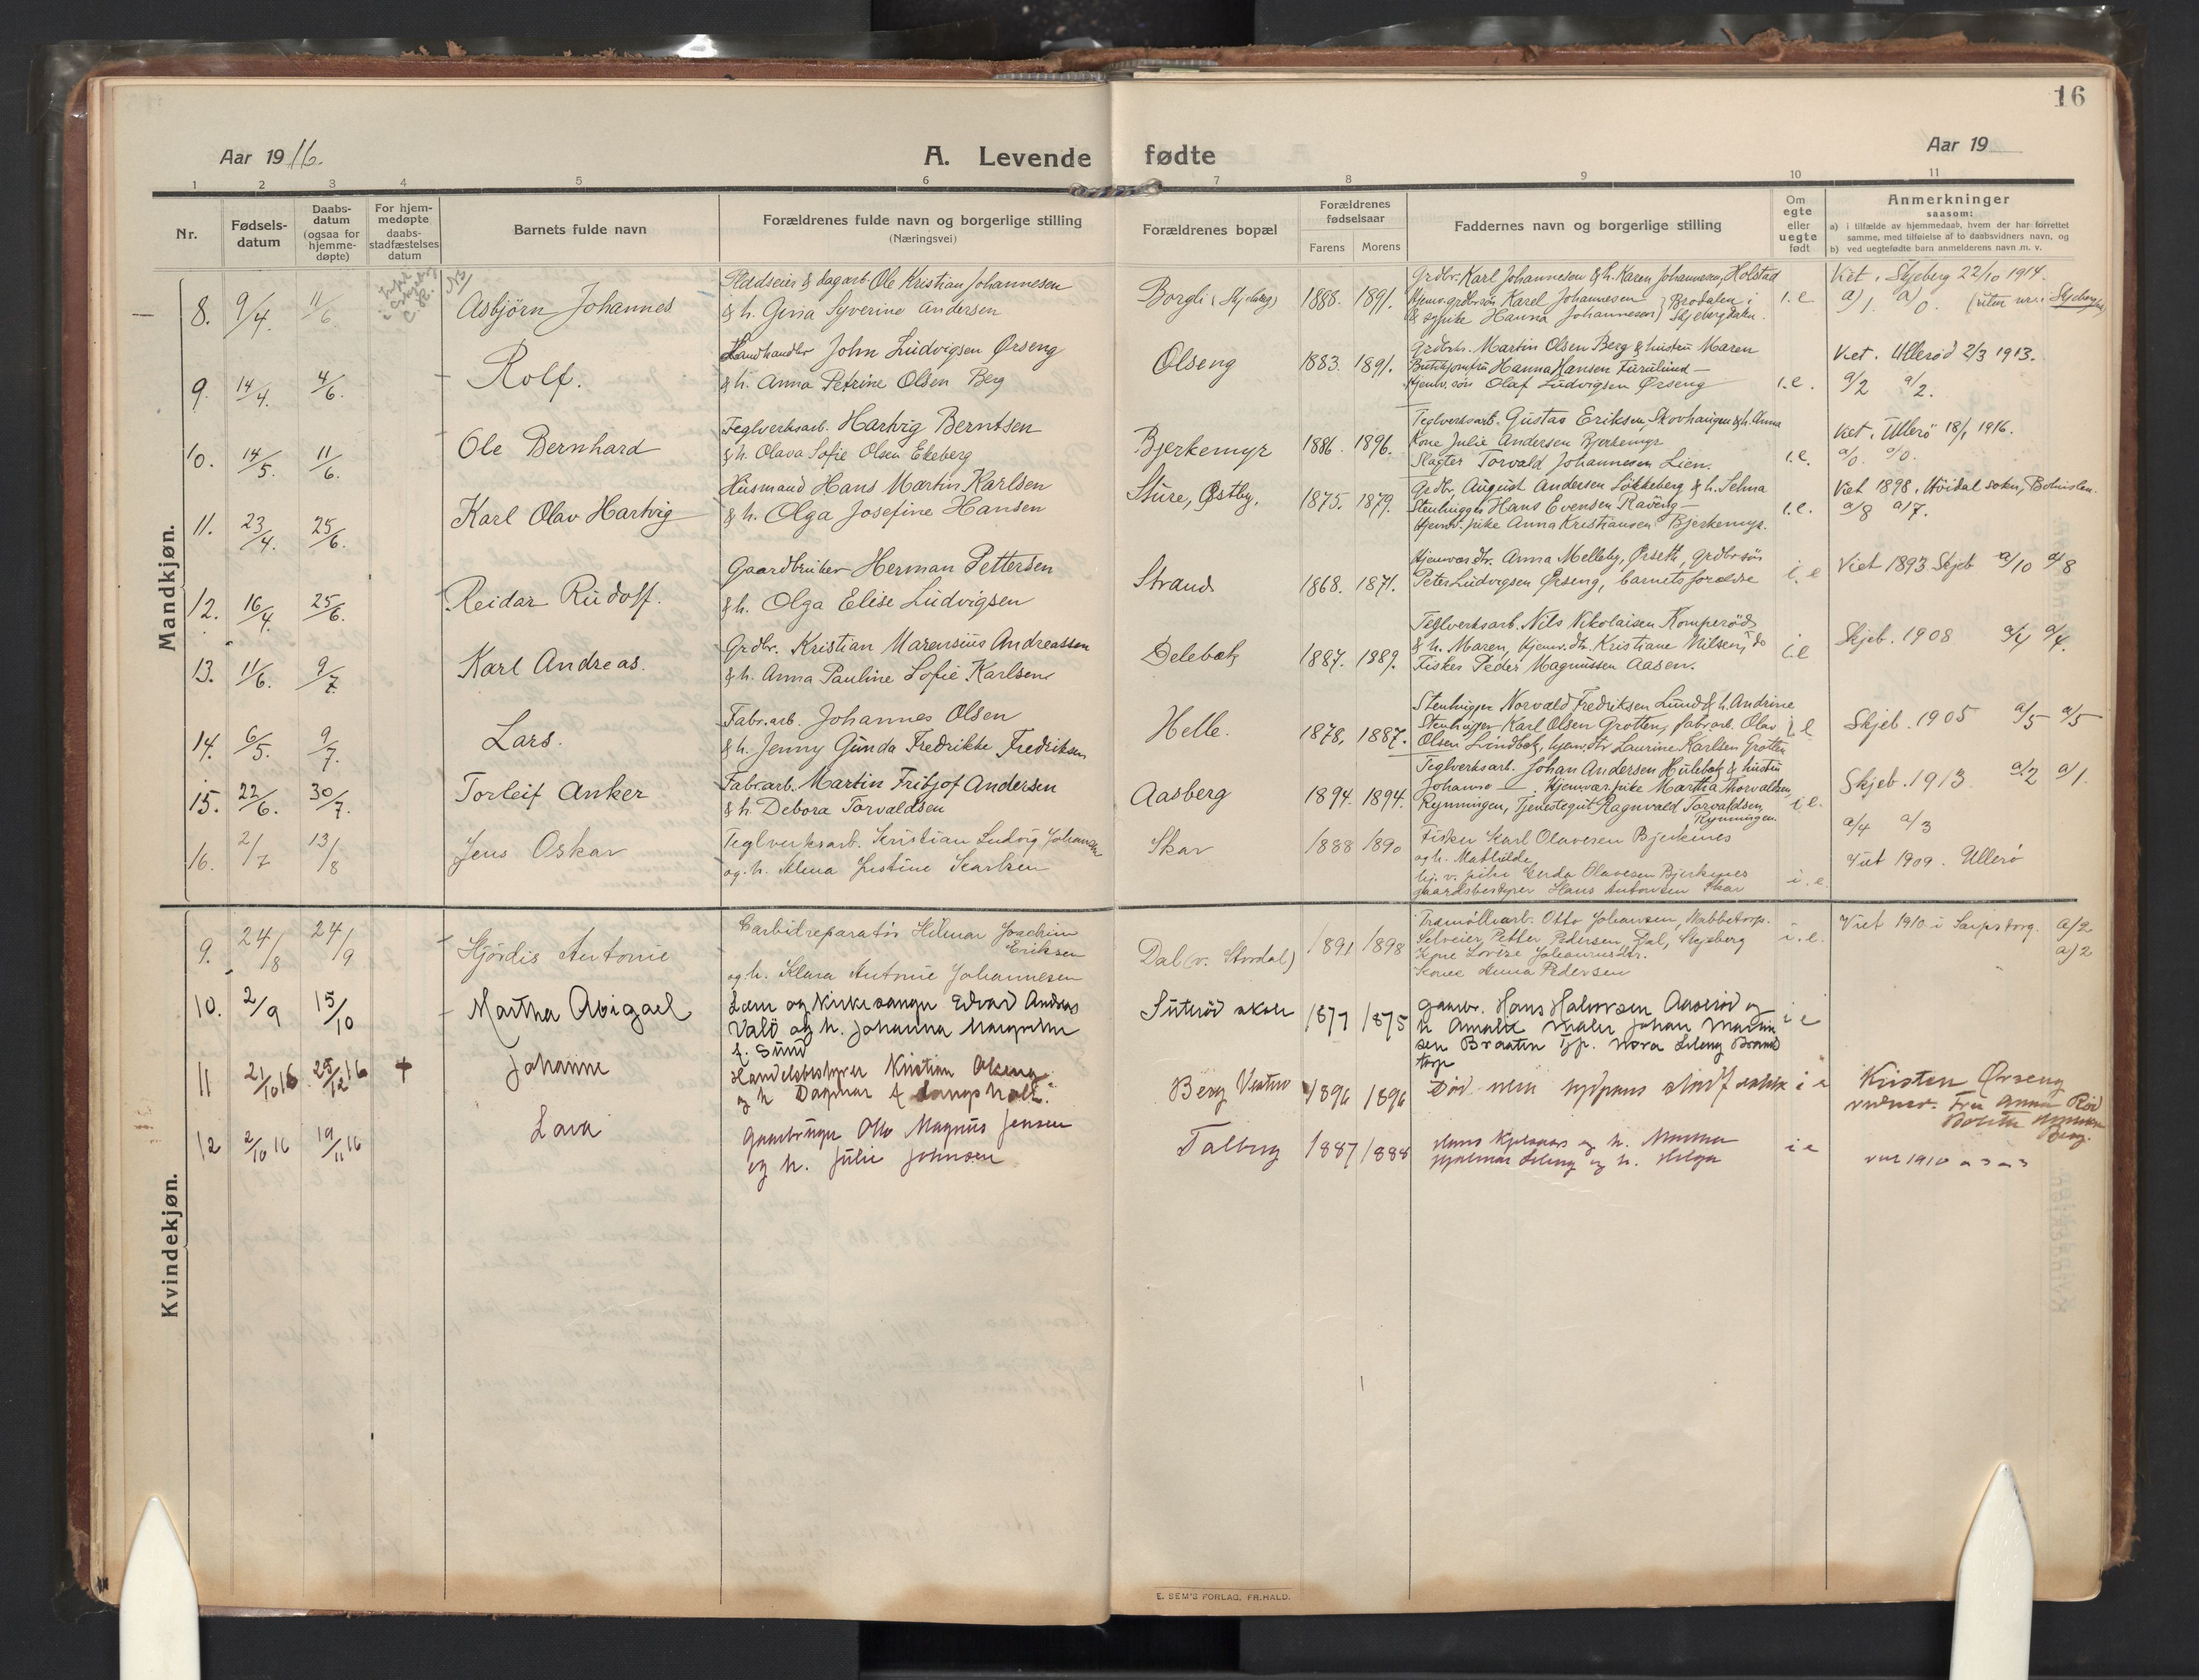 16
Aar 1916.
A. Levende fødte
Aar 19
1 2 3 4 5 6 7 8 9 10 11
Nr.
Fødsels-
datum
Daabs-
datum
(ogsaa for
hjemme-
døpte)
For hjem-
medøpte
daabs-
stadfæstelses
datum
Barnets fulde navn
Forældrenes fulde navn og borgerlige stilling
(Næringsvei)
Forældrenes bopæl
Forældrenes
fødselsaar
Farens Morens
Faddernes navn og borgerlige stilling
Om
egte
eller
uegte
født
Anmerkninger
saasom:
a) i tilfælde av hjemmedaab, hvem der har forrettet
samme, med tilføielse af to daabsvidners navn, og
b) ved uegtefødte barn anmelderens navn m. v.
Mandkjøn.
8. 9/4. 11/6
Asbjørn Johannes
Ole Kristian Johannesen
& h. Gina Syverine Andersen
Borgli (Skjeberg) 1888. 1891.
Grdbr. Karl Johannesen & h. Karen Johannesen, Holstad
Hjemv. grdbrsøn Karel Johannesen } Brodalen i
Hanna Johannesen } Skjebergdalen.
i.e
Viet i Skjeberg 22/10 1914.
a) 1. a) 0.
9. 14/4. 4/6.
Rolf.
Landhandler John Ludvigsen Ørseng
& h. Anna Petrine Olsen Berg
Olseng 1883. 1891.
Grdbr. Martin Olsen Berg & hustru Maren
Hanna Hansen Furulund —
Hjemv. søn Olaf Ludvigsen Ørseng
i.e.
Viet i Ullerød 2/3 1913.
a/2 a/2.
10. 14/5. 11/6.
Ole Bernhard
Teglverksarb. Hartvig Berntsen
& h. Olava Sofie Olsen Ekeberg
Bjerkemyr 1886. 1896.
Teglverksarb. Gustav Eriksen, Skovhaugen & h. Anna
Kone Julie Andersen Bjerkemyr
Slagter Torvald Johannesen Lien.
i.e.
Viet i Ullerø 18/1 1916.
a/0. a/0.
11. 23/4. 25/6.
Karl Olav Hartvig
Husmand Hans Martin Karlsen
& h. Olga Josefine Hansen
Sture, Østby, 1875. 1879.
Grdbr. August Andersen Løkkeberg & h. Selma
Stenhugger Hans Evensen Røveng —
Hjemv. pike Anna Kristiansen Bjerkemyr.
i.e.
Viet 1898 i
a/8 a/7.
12. 16/4. 25/6.
Reidar Rudolf.
Gaardbruker Herman Pettersen
& h. Olga Elise Ludvigsen
Strand 1868. 1871.
Hjemvær. dtr. Anna Melleby, Ørseth, grdbrsøn
Peter Ludvigsen Ørseng, barnets forældre
i.e
Viet 1893 Skjeb a/10 a/8
13. 11/6. 9/7
Karl Andreas.
Grdbr. Kristian Marensius Andreassen
& h. Anna Pauline Sofie Karlsen
Delebæk 1887. 1889.
Teglverksarb. Nils Nikolaisen Komperød
& h. Maren, Hjemv. dtr. Kristiane Nilsen, do
Fisker Peder Magnussen Aasen.
i.e
Skjeb. 1908 a/4 a/4.
14. 6/5. 9/7.
Lars.
Fabr. arb. Johannes Olsen
& h. Jenny Gunda Fredrikke Fredriksen
Helle. 1878. 1887.
Stenhugger Norvald Fredriksen Lund & h. Andrine
Stenhugger Karl Olsen Grotten, fabr. arb. Olav
Olsen Lindbæk, hjemv. dtr Laurine Karlsen Grotten
i.e
Skjeb. 1905 a/5 a/5
15. 22/6. 30/7.
Torleif Anker
Fabr. arb. Martin Fritjof Andersen
& h. Debora Torvaldsen
Aasberg 1894. 1894.
Teglverksarb. Johan Andersen Hulebæk & hustru
Hjemvær. pike Martha Thorvaldsen,
Rynningen, Tjenestegut Ragnvald Torvaldsen,
Rynningen
i.e.
Skjeb. 1913 a/2 a/1.
16. 2/7 13/8
Jens Oskar
Teglverksarb. Kristian Ludvig Johansen
og h. Alma Justine Karlsen
Skar 1888 1890
Fisker Karl Olavesen Bjerkenes
og h. Mathilde,
hj. v. pike Gerda Olavesen Bjerkenes
gaardsbestyrer Hans Antonsen Skar
i.e.
a/4 a/3
Viet 1909. Ullerø
Kvindekjøn.
9. 24/8 24/9
Hjørdis Antonie
Carbidreparatør Hilmar Joachim
Eriksen
og h. Klara Antonie Johannesen
Dal (v. Stordal) 1891 1898
Otto Johansen, Nabbetorp.
Selveier Petter Pedersen, Dal, Skjeberg
Kone Lovise Johannesdtr.
Kone Anna Pedersen
i.e.
Viet 1910 i Sarpsborg. a)2
a)2
10. 2/9 15/10
Martha Abigael
Lærer og kirkesanger Edvard Andreas
Valø og h. Johanna Margrethe
f. Sund
Suterød skole 1877 1875
Gaardbr. Hans Halvorsen Aaserød og
h Amalie Maler Johan Martin
sen Braaten
torp
i e
11 21/10 16 25/12 16 +
Johanne
Handelsbestyrer Kristian Olseng
og h Dagmar f Langsholt.
Berg Vestre 1896 1896
i e
Kristen Ørseng
Fru Anna Rød
Berg.
12 2/10 16 19/11 16
Lava
Gaardbruger Otto Magnus Jensen
og h. Julie Johnsen
Talberg 1887 1888
Hjalmar Leleng og h. Helga
i e
viet 1910 a 3 a 3
E. SEM'S FORLAG, FR.HALD.